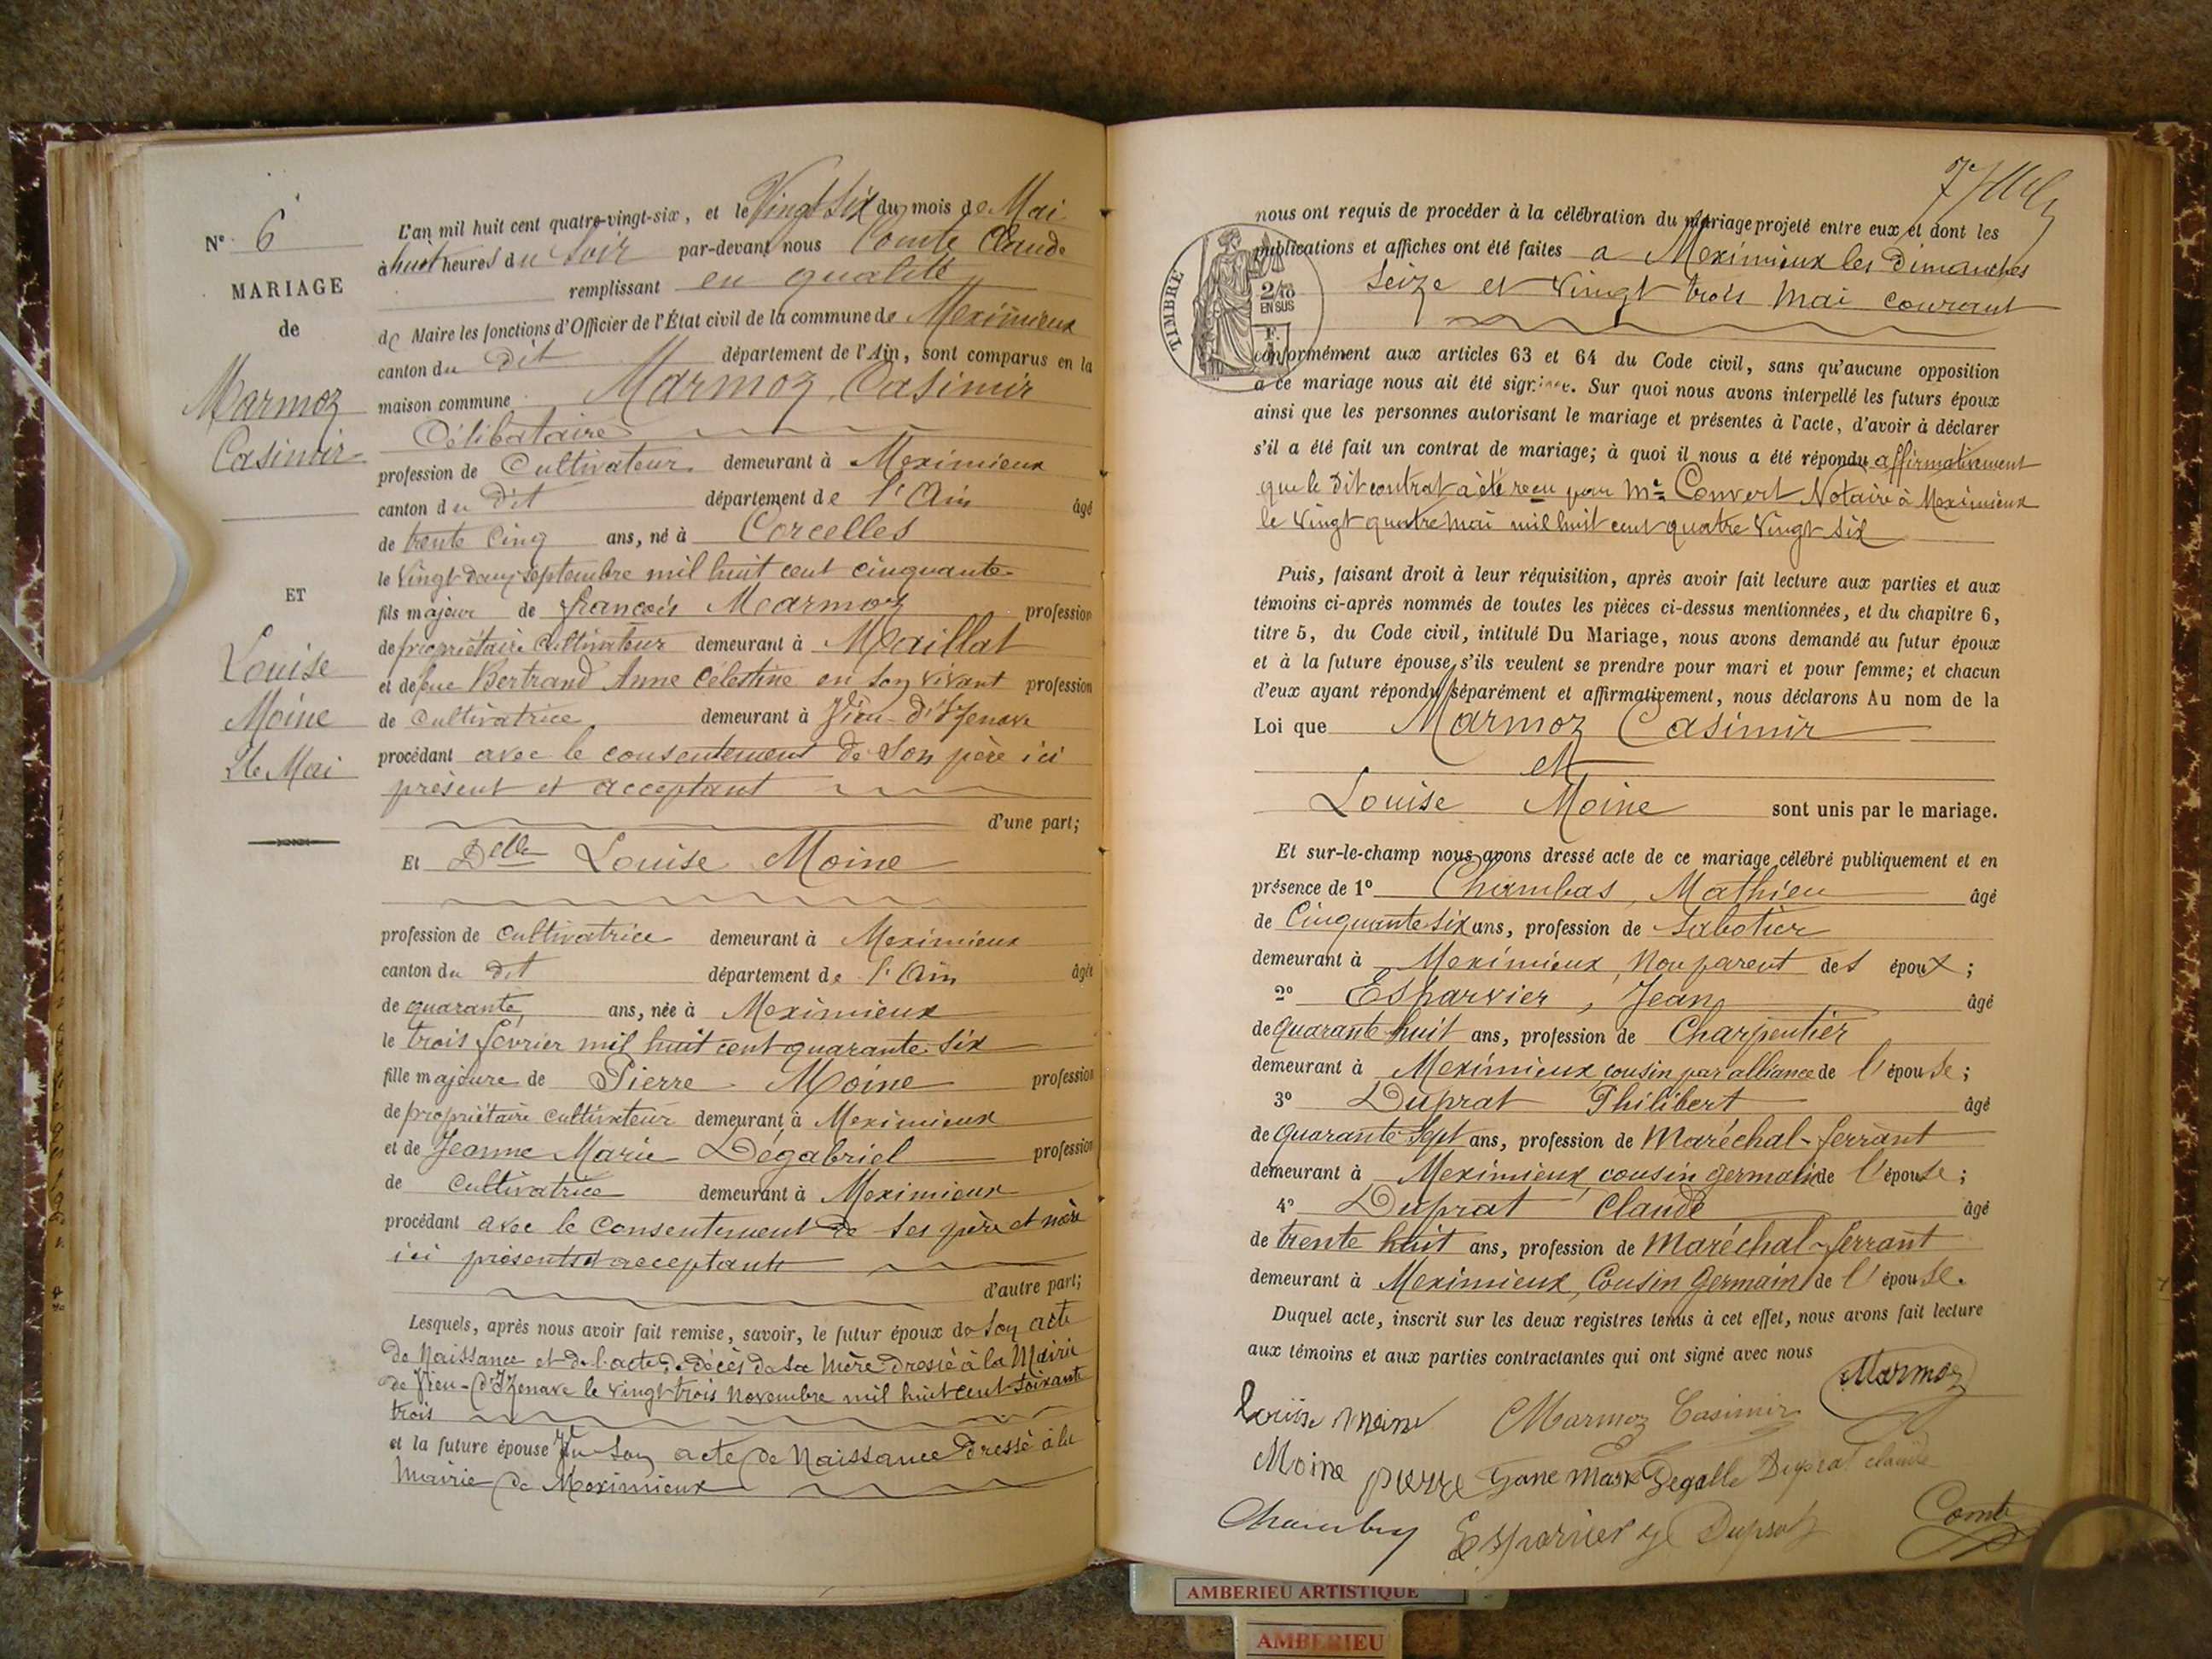 N° 6
MARIAGE
de
Marmoz
Casimir
ET
Louise
Moine
26 Mai
L'an mil huit cent quatre-vingt-six, et le Vingt Six du mois de Mai
à huit heures du Soir par-devant nous Comte Claude
remplissant en qualité
de Maire les fonctions d'Officier de l'État civil de la commune de Meximieux
canton du dit département de l'Ain, sont comparus en la
maison commune Marmoz Casimir
Célibataire
profession de Cultivateur demeurant à Meximieux
canton du dit département de l'Ain âgé
de trente cinq ans, né à Corcelles
le vingt deux septembre mil huit cent cinquante
fils majeur de françois Marmoz profession
de propriétaire cultivateur demeurant à Maillat
et de feue Bertrand Anne Célestine en son vivant profession
de Cultivatrice demeurant à Vieu-d'Izenave
procédant avec le consentement de Son père ici
présent et acceptant
d'une part;
Et Delle Louise Moine
profession de cultivatrice demeurant à Meximieux
canton du dit département de l'Ain âgée
de quarante ans, née à Meximieux
le trois février mil huit cent quarante six
fille majeure de Pierre Moine profession
de propriétaire cultivateur demeurant à Meximieux
et de Jeanne Marie Dégabriel profession
de Cultivatrice demeurant à Meximieux
procédant avec le Consentement de Ses père et mère
ici présents et acceptants
d'autre part;
Lesquels, après nous avoir fait remise, savoir, le futur époux de Son acte
de Naissance et de l'acte de décès de sa Mère dressé à la Mairie
de Vieu-d'Izenave le vingt trois Novembre mil huit cent soixante
trois
et la future épouse de Son acte de Naissance dressé à la
Mairie de Meximieux
nous ont requis de procéder à la célébration du mariage projeté entre eux et dont les
publications et affiches ont été faites a Meximieux les Dimanches
Seize et Vingt trois Mai courant
TIMBRE
2/10
EN SUS
conformément aux articles 63 et 64 du Code civil, sans qu'aucune opposition
à ce mariage nous ait été signifiée. Sur quoi nous avons interpellé les futurs époux
ainsi que les personnes autorisant le mariage et présentes à l'acte, d'avoir à déclarer
s'il a été fait un contrat de mariage; à quoi il nous a été répondu affirmativement
que le dit contrat a été reçu par Me Convert Notaire à Meximieux
le Vingt quatre Mai mil huit cent quatre Vingt Six
Puis, faisant droit à leur réquisition, après avoir fait lecture aux parties et aux
témoins ci-après nommés de toutes les pièces ci-dessus mentionnées, et du chapitre 6,
titre 5, du Code civil, intitulé Du Mariage, nous avons demandé au futur époux
et à la future épouse s'ils veulent se prendre pour mari et pour femme; et chacun
d'eux ayant répondu séparément et affirmativement, nous déclarons Au nom de la
Loi que Marmoz Casimir
et
Louise Moine sont unis par le mariage.
Et sur-le-champ nous avons dressé acte de ce mariage célébré publiquement et en
présence de 1° Chambas, Mathieu âgé
de Cinquante Six ans, profession de Sabotier
demeurant à Meximieux Non parent des époux;
2° Esparvier, Jean âgé
de quarante huit ans, profession de Charpentier
demeurant à Meximieux cousin par alliance de l'épouse;
3° Duprat Philibert âgé
de quarante Sept ans, profession de Maréchal-ferrant
demeurant à Meximieux cousin germain de l'épouse;
4° Duprat Claude âgé
de trente huit ans, profession de Maréchal-ferrant
demeurant à Meximieux, Cousin Germain de l'épouse.
Duquel acte, inscrit sur les deux registres tenus à cet effet, nous avons fait lecture
aux témoins et aux parties contractantes qui ont signé avec nous
Marmoz
Louise Moine Marmoz Casimir
Moine pierre Duprat claude
Comte
AMBERIEU ARTISTIQUE
AMBERIEU